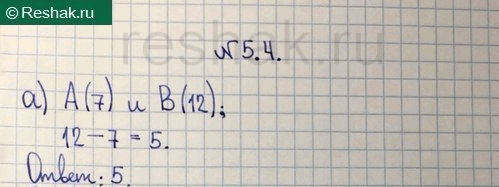 Reshak.ru
reshak.ru
№ 5.4.
а) A(7) и B(12);
12 - 7 = 5.
Ответ: 5.